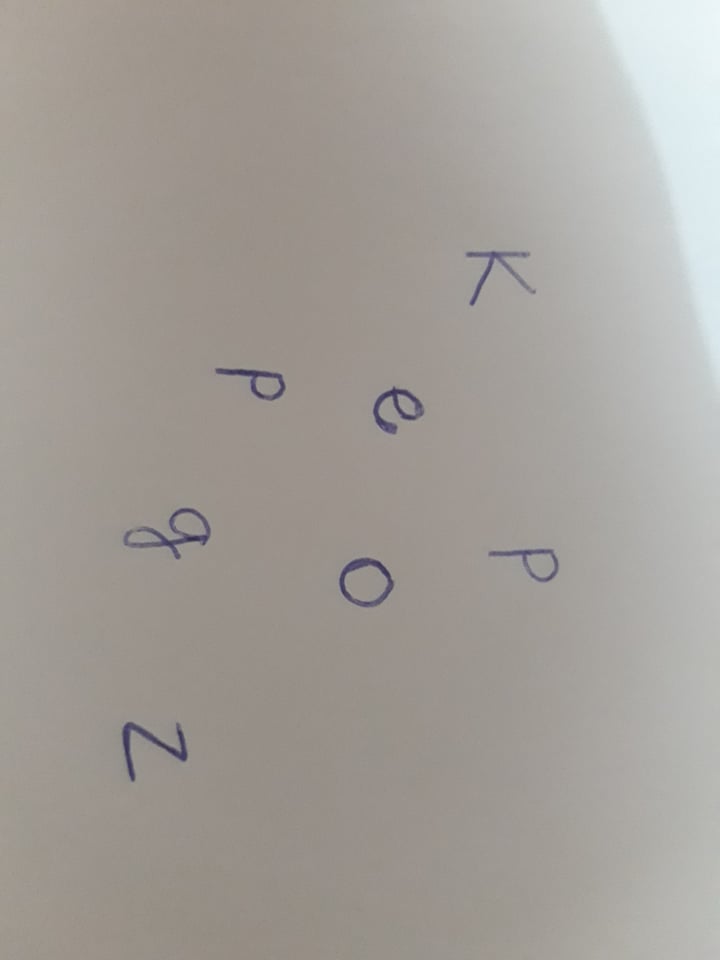 K P
e o
p
g z